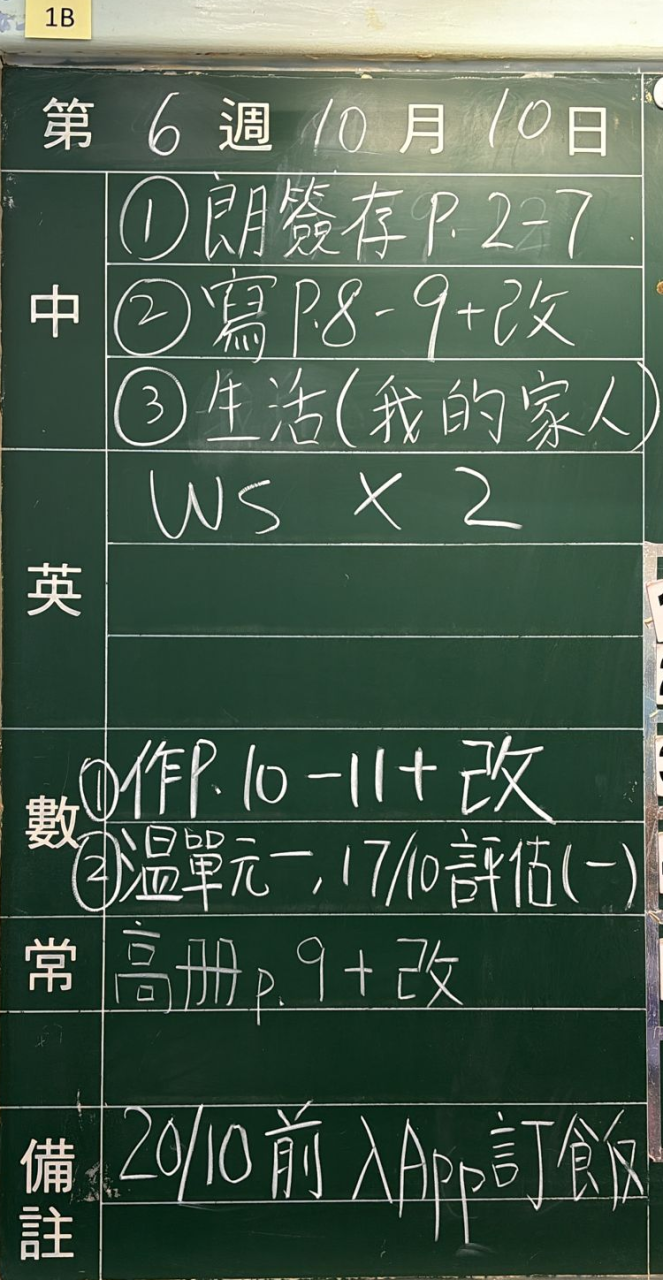 1B
第 6 週 10 月 10 日
中
①朗簽存 P. 2-7
②寫 P.8-9+改
③生活(我的家人)
英
WS × 2
數
①作P. 10-11+改
②温單元一, 17/10評估(一)
常
高册p. 9+改
備註
20/10前入App訂飯